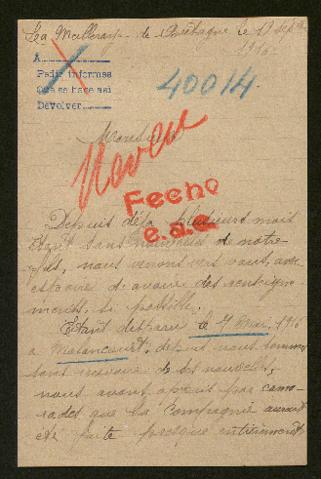 La Meilleraye de Bretagne le 17 Sept
1916
A
Pedir informes
Que se hace asi
Devolver
40014
Monsieur
Feeho
e.a.c.
Depuis déjà plusieurs mois
étant sans nouvelles de notre
fils, nous venons vers vous, avec
espoire d'avoire des renseigne-
ments, si possible.
Etant disparu le 7 Mai 1916
a Malancourt, depuis nous sommes
sans recevoire de ses nouvelles,
nous avons appris par cama-
rades que la Compagnie aurait
été faite presque entièrement